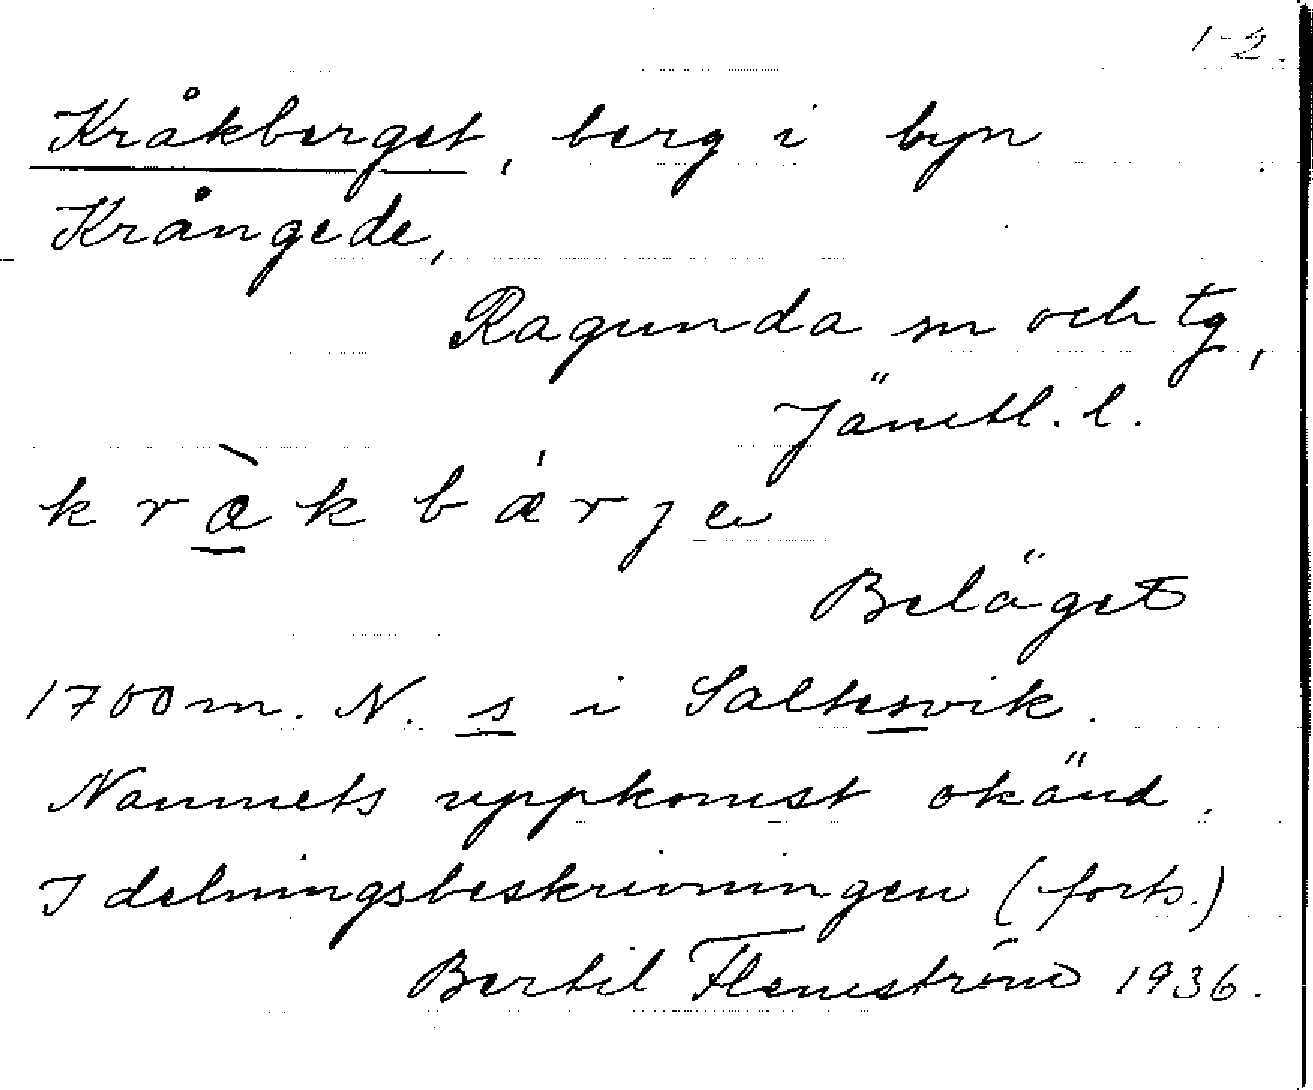 1-2.
Kråkberget, berg i byn
Krångede,
Ragunda sn och tg,
Jämtl. l.
Beläget
1700 m. N. s i Saltesvik.
Namnets uppkomst okänd.
I delningsbeskrivningen (forts.)
Bertil Flemström 1936.